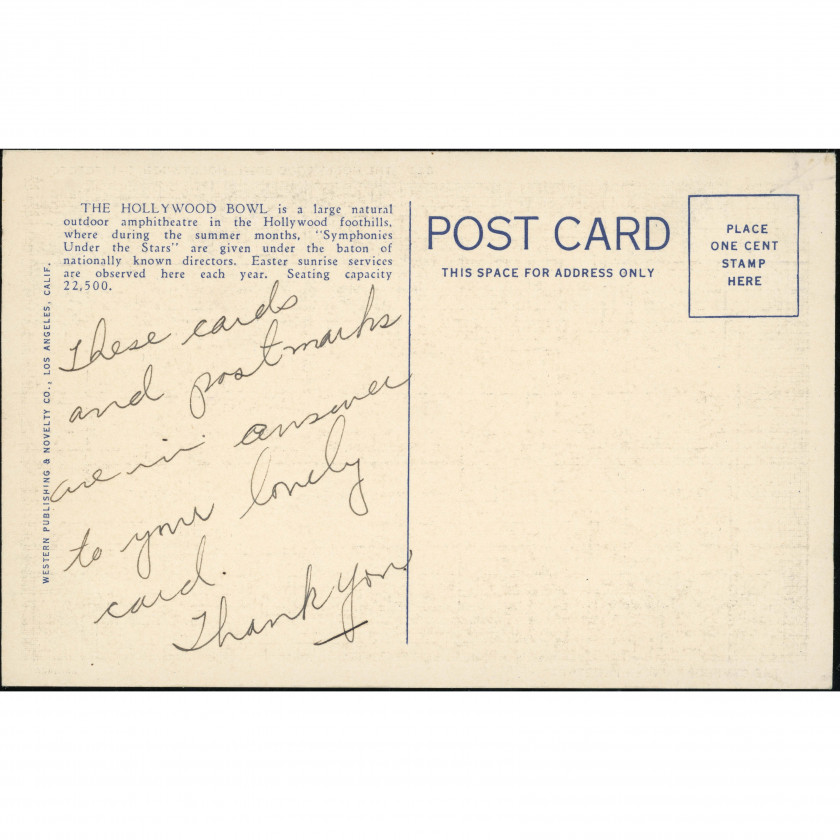 THE HOLLYWOOD BOWL is a large natural
outdoor amphitheatre in the Hollywood foothills,
where during the summer months, "Symphonies
Under the Stars" are given under the baton of
nationally known directors. Easter sunrise services
are observed here each year. Seating capacity
22,500.
These cards
and postmarks
are in answer
to your lonely
card.
Thank you
WESTERN PUBLISHING & NOVELTY CO., LOS ANGELES, CALIF.
POST CARD
THIS SPACE FOR ADDRESS ONLY
PLACE
ONE CENT
STAMP
HERE